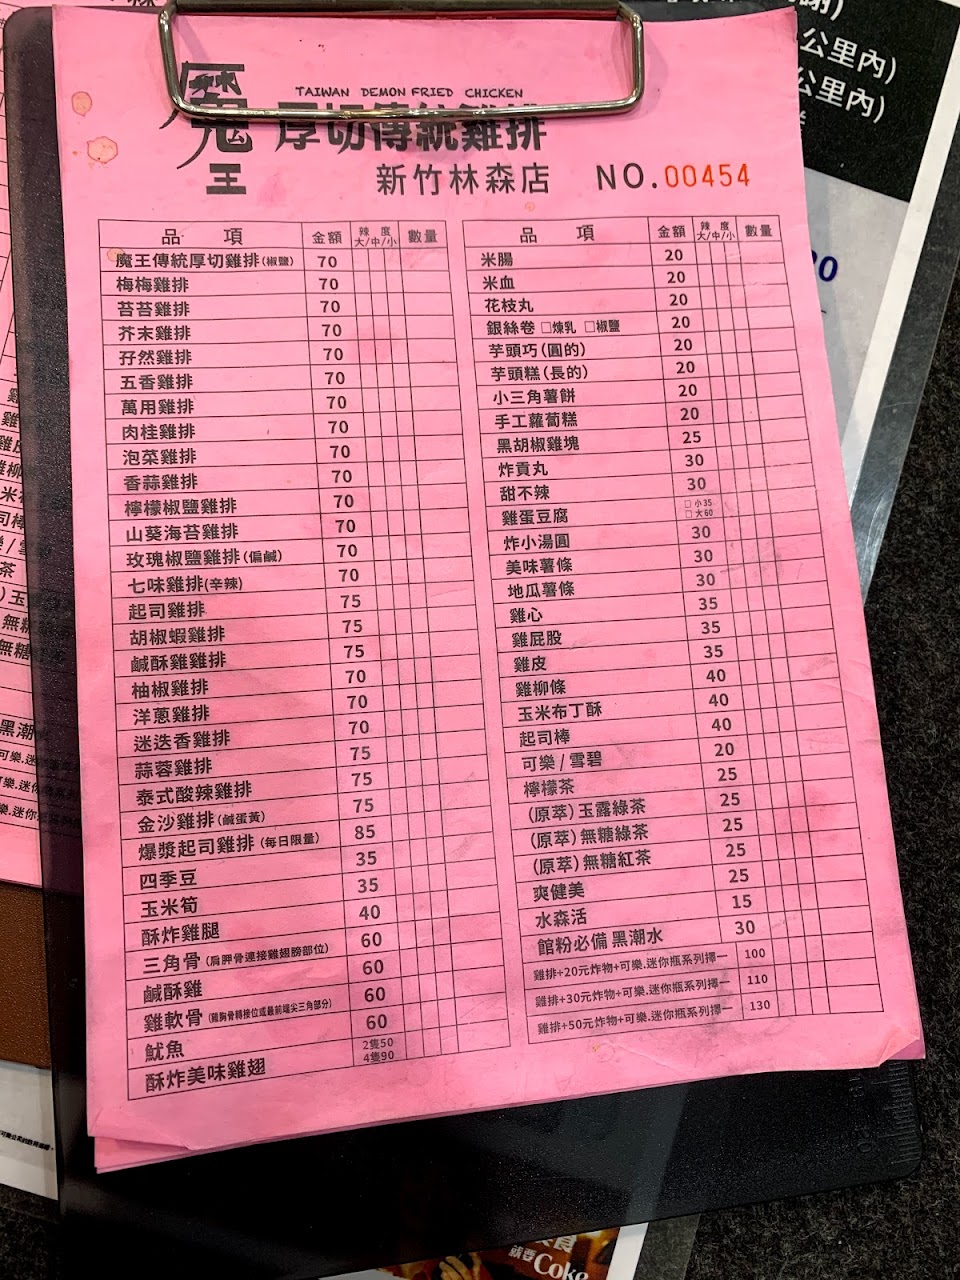 TAIWAN DEMON FRIED CHICKEN
魔王
厚切傳統雞排
新竹林森店 NO.00454
品 項 金額 辣度 大/中/小 數量
魔王傳統厚切雞排(椒鹽) 70
梅梅雞排 70
苔苔雞排 70
芥末雞排 70
孜然雞排 70
五香雞排 70
萬用雞排 70
肉桂雞排 70
泡菜雞排 70
香蒜雞排 70
檸檬椒鹽雞排 70
山葵海苔雞排 70
玫瑰椒鹽雞排(偏鹹) 70
七味雞排(辛辣) 70
起司雞排 75
胡椒蝦雞排 75
鹹酥雞雞排 75
柚椒雞排 70
洋蔥雞排 70
迷迭香雞排 70
蒜蓉雞排 75
泰式酸辣雞排 75
金沙雞排(鹹蛋黃) 75
爆漿起司雞排(每日限量) 85
四季豆 35
玉米筍 35
酥炸雞腿 40
三角骨(肩胛骨連接雞翅膀部位) 60
鹹酥雞 60
雞軟骨(雞胸骨轉接位或最前端尖三角部分) 60
魷魚 60
酥炸美味雞翅 2隻50 4隻90
品 項 金額 辣度 大/中/小 數量
米腸 20
米血 20
花枝丸 20
銀絲卷 □煉乳 □椒鹽 20
芋頭巧(圓的) 20
芋頭糕(長的) 20
小三角薯餅 20
手工蘿蔔糕 20
黑胡椒雞塊 25
炸貢丸 30
甜不辣 30
雞蛋豆腐 □小35 □大60
炸小湯圓 30
美味薯條 30
地瓜薯條 30
雞心 35
雞屁股 35
雞皮 35
雞柳條 40
玉米布丁酥 40
起司棒 40
可樂/雪碧 20
檸檬茶 25
(原萃)玉露綠茶 25
(原萃)無糖綠茶 25
(原萃)無糖紅茶 25
爽健美 25
水森活 15
館粉必備 黑潮水 30
雞排+20元炸物+可樂.迷你瓶系列擇一 100
雞排+30元炸物+可樂.迷你瓶系列擇一 110
雞排+50元炸物+可樂.迷你瓶系列擇一 130
公里內)
公里內)
黑潮
就要Coke